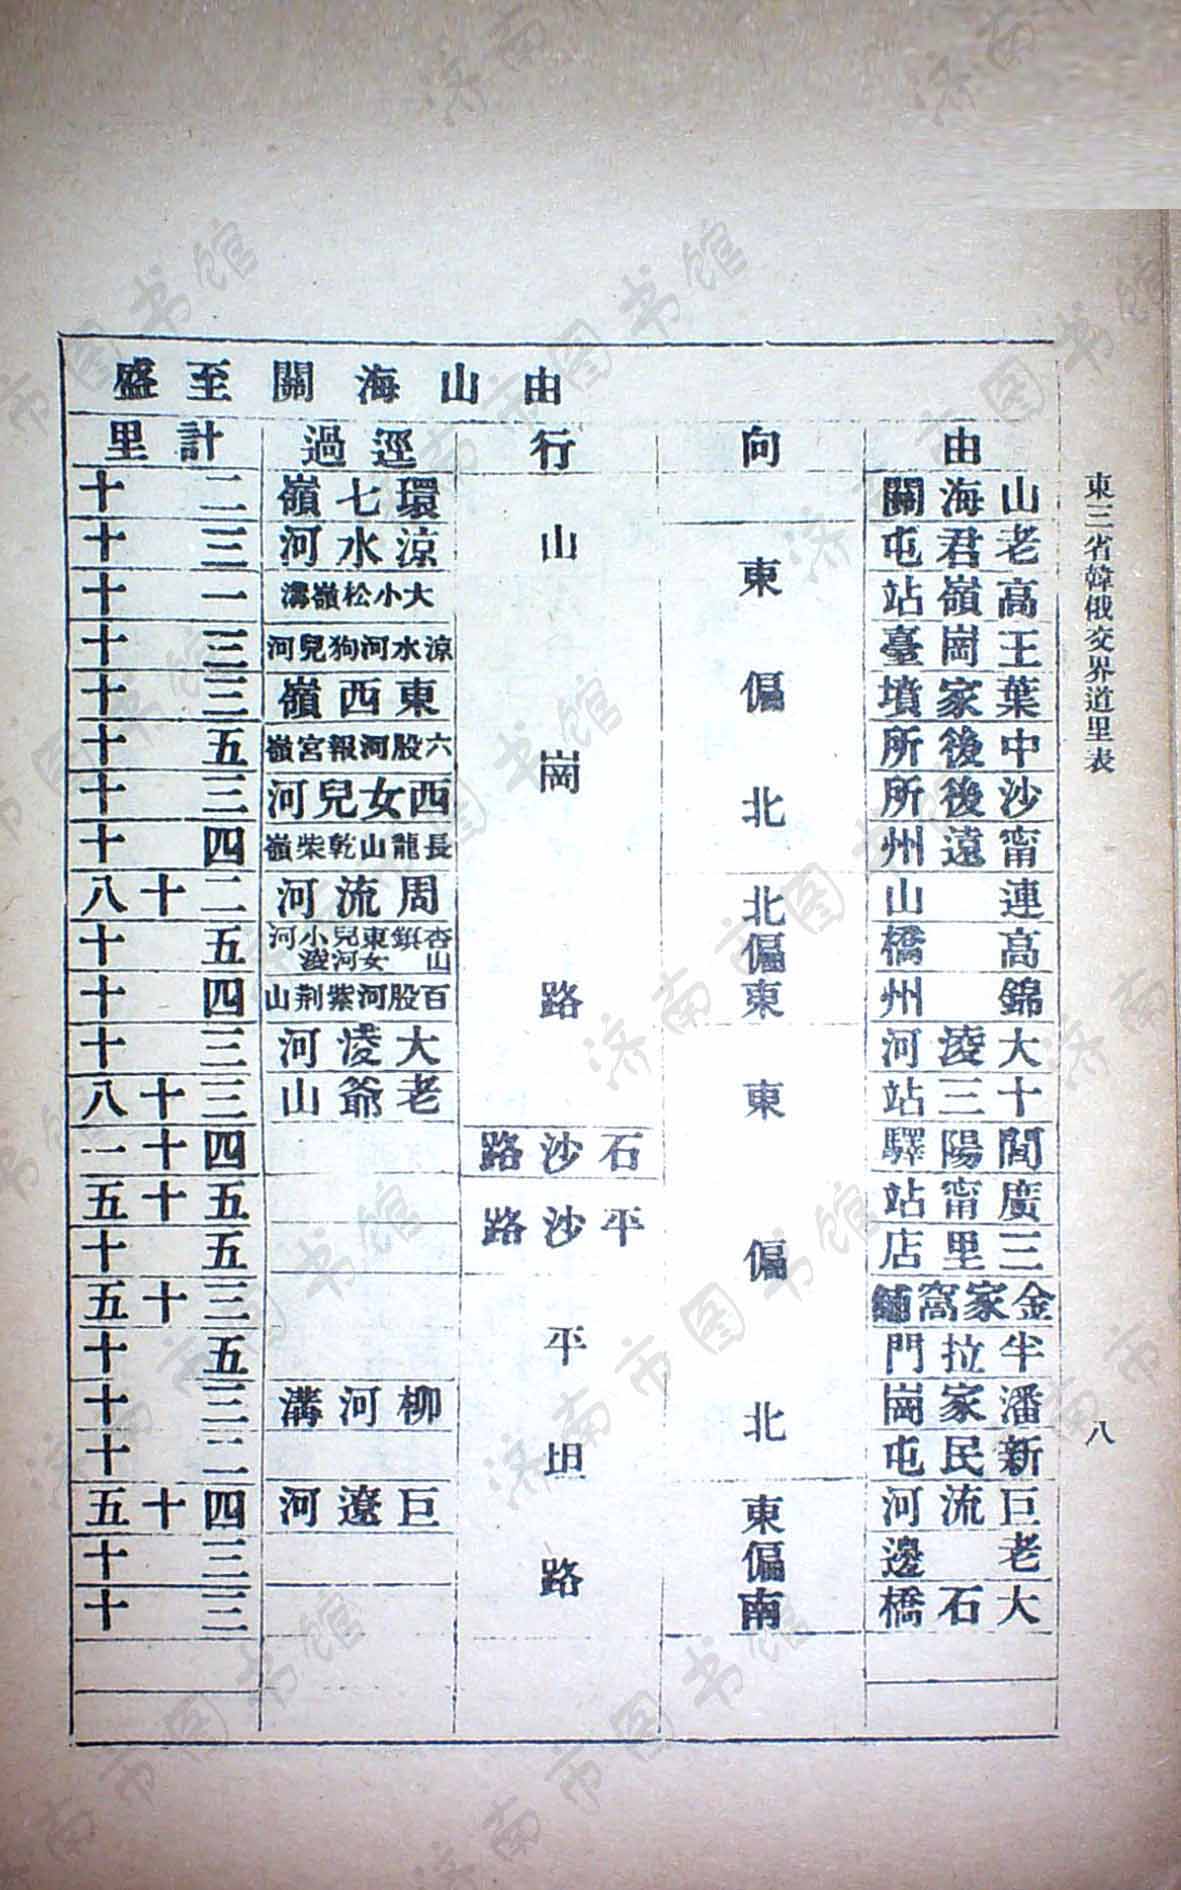 東三省韓俄交界道里表
八
由山海關至盛
由 向 行 逕過 計里
山海關 環七嶺 二十
老君屯 涼水河 三十
高嶺站 大小松嶺溝 一十
王崗臺 涼水河狗兒河 三十
葉家墳 東西嶺 三十
中後所 六股河報宮嶺 五十
沙後所 西女兒河 三十
甯遠州 長龍山乾柴嶺 四十
連山 周流河 二十八
高橋 杏山鎮東女兒河小淩河 五十
錦州 百股河紫荆山 四十
大淩河 大淩河 三十
十三站 老爺山 三十八
閭陽驛 四十一
廣甯站 五十五
三里店 五十
金家窩鋪 三十五
半拉門 五十
潘家崗 柳河溝 三十
新民屯 二十
巨流河 巨遼河 四十五
老邊 三十
大石橋 三十
東偏北
北偏東
東偏北
東偏南
山崗路
石沙路
平沙路
平坦路
济南市图书馆